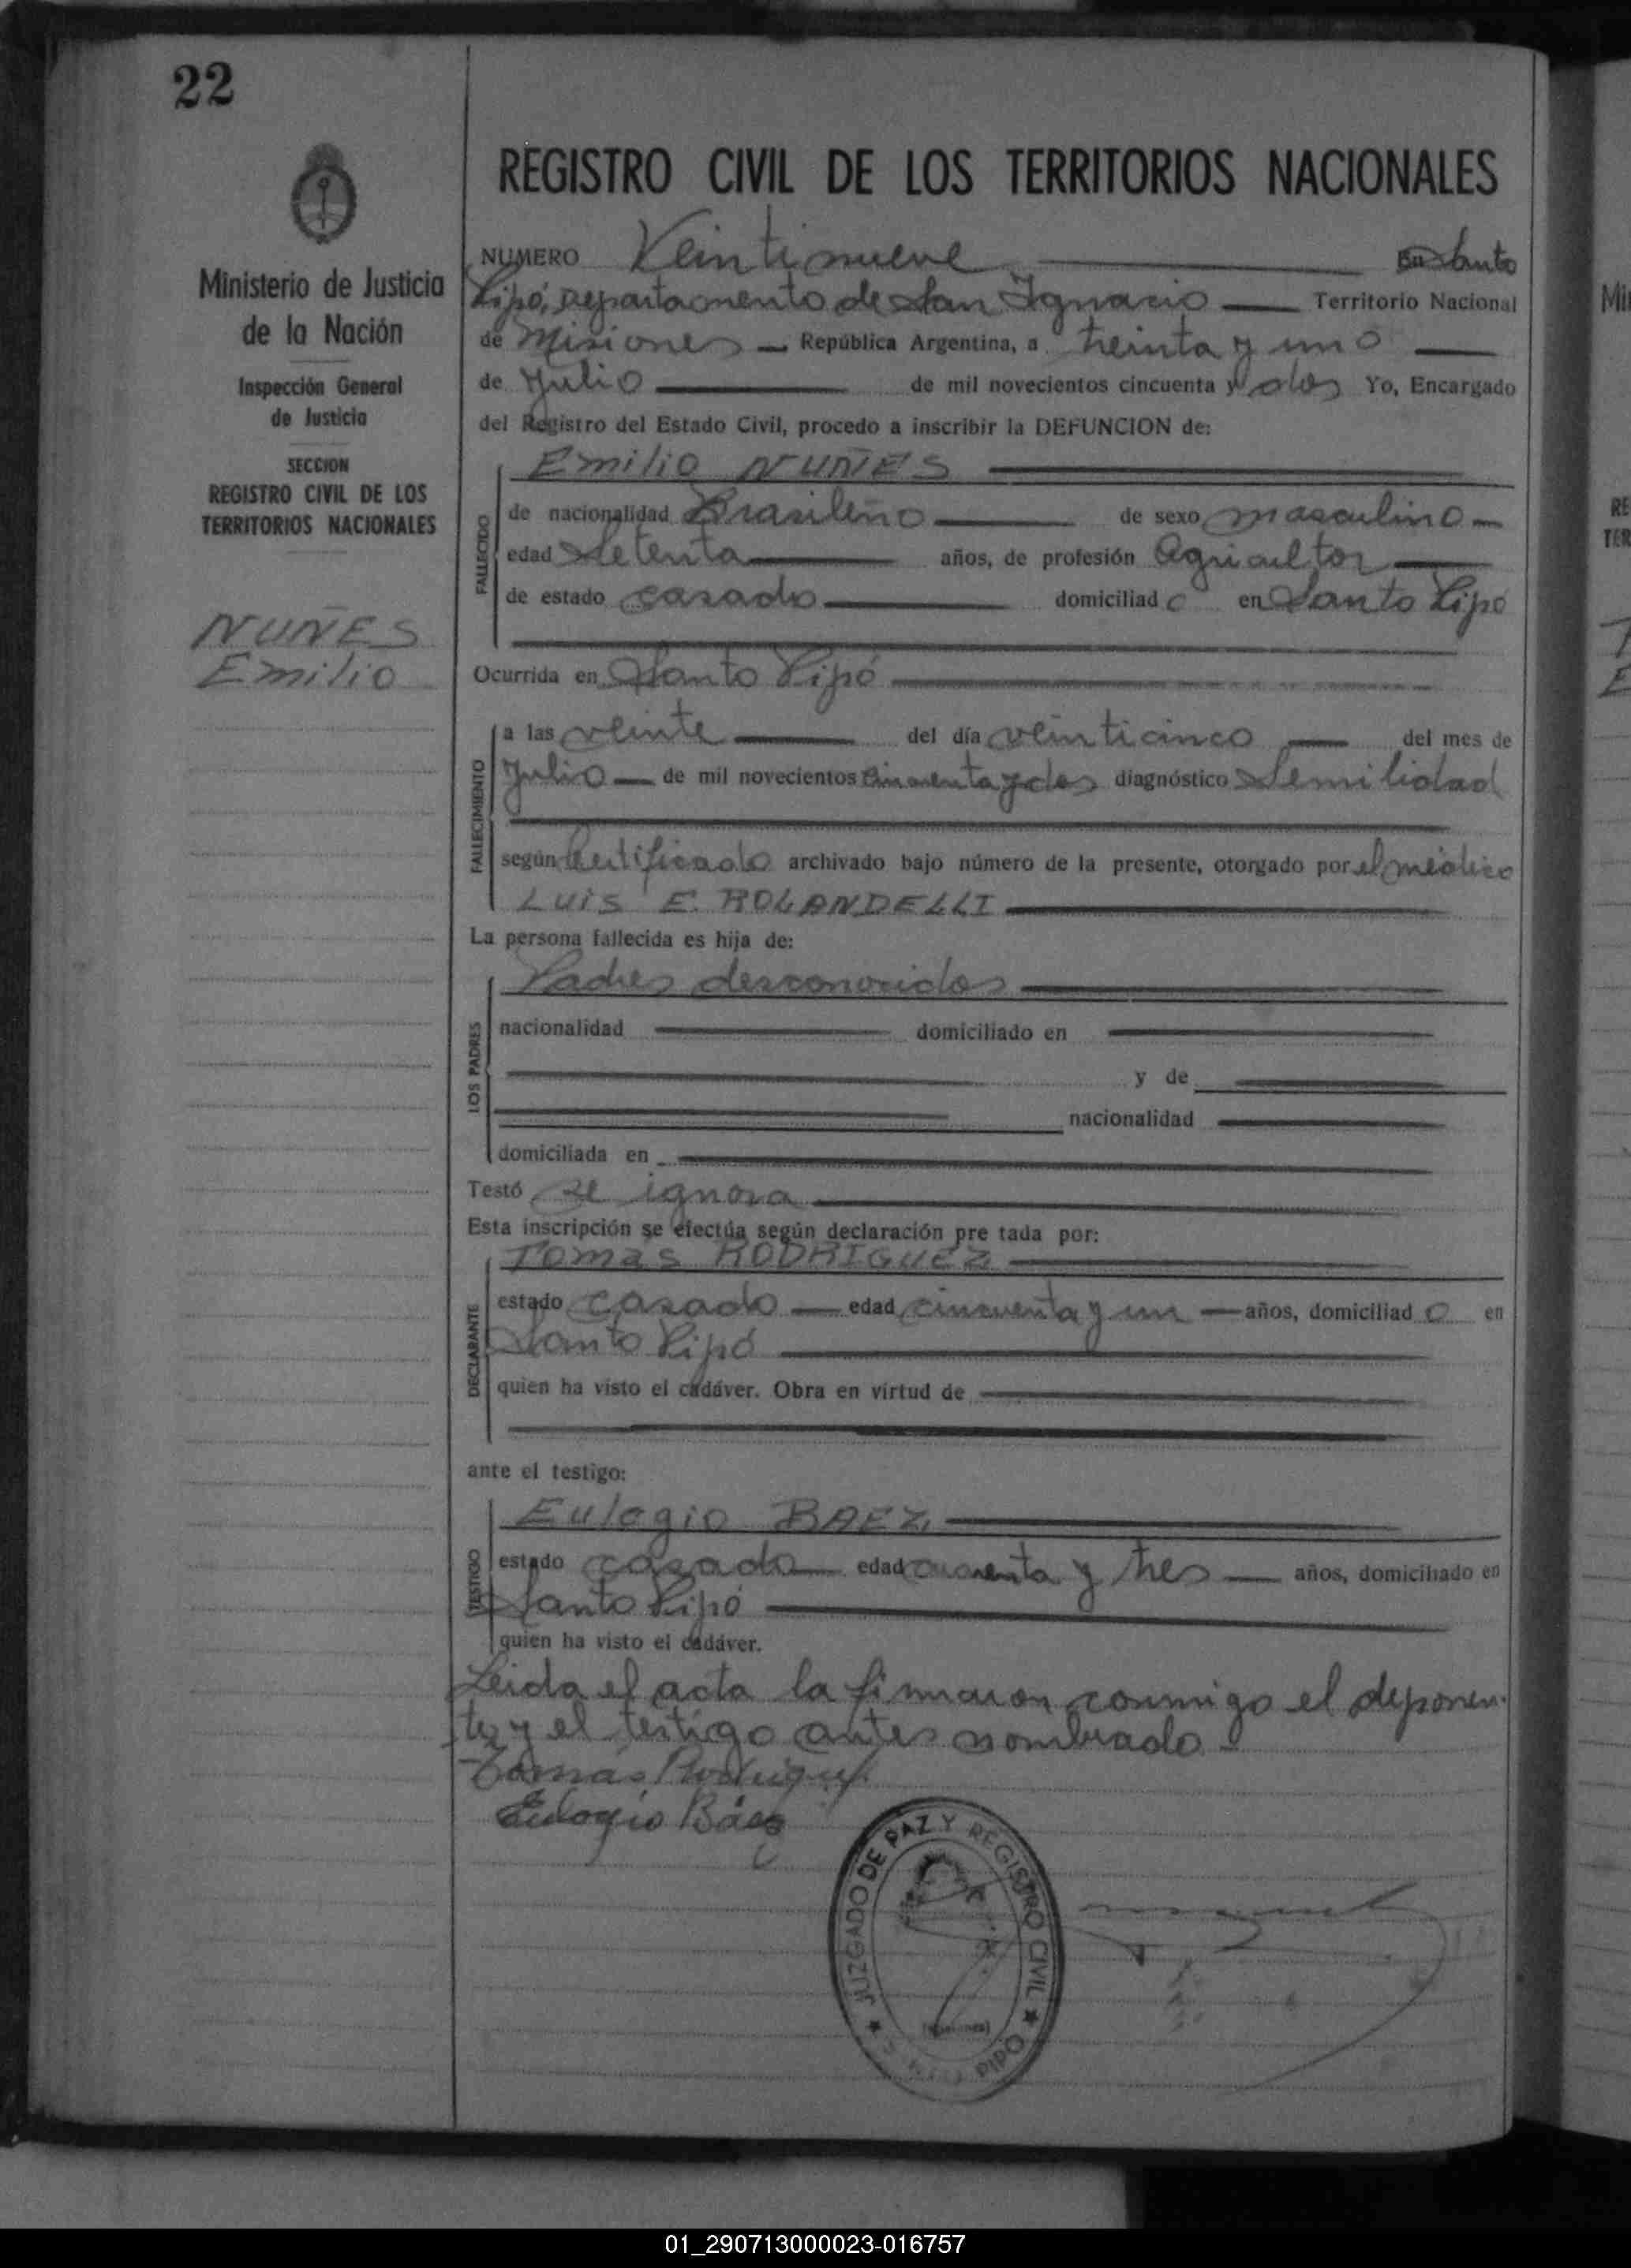 22
REGISTRO CIVIL DE LOS TERRITORIOS NACIONALES
Ministerio de Justicia
de la Nación
Inspección General
de Justicia
SECCION
REGISTRO CIVIL DE LOS
TERRITORIOS NACIONALES
NUÑES
Emilio
NUMERO Veintinueve En Santo
Pipó, Departamento de San Ignacio Territorio Nacional
de Misiones República Argentina, a treinta y uno
de Julio de mil novecientos cincuenta y dos Yo, Encargado
del Registro del Estado Civil, procedo a inscribir la DEFUNCION de:
Emilio NUÑES
FALLECIDO
de nacionalidad Brasileño de sexo masculino
edad Setenta años, de profesión Agricultor
de estado casado domiciliado en Santo Pipó
Ocurrida en Santo Pipó
FALLECIMIENTO
a las veinte del día veinticinco del mes de
Julio de mil novecientos cincuenta y dos diagnóstico Semilidad
según Certificado archivado bajo número de la presente, otorgado por el médico
LUIS E. ROLANDELLI
La persona fallecida es hija de:
LOS PADRES
Padres desconocidos
nacionalidad domiciliado en
y de
nacionalidad
domiciliada en
Testó se ignora
Esta inscripción se efectúa según declaración pre tada por:
DECLARANTE
Tomas RODRIGUEZ
estado casado edad cincuenta y un años, domiciliado en
Santo Pipó
quien ha visto el cadáver. Obra en virtud de
ante el testigo:
TESTIGO
Eulogio BAEZ
estado casado edad cuarenta y tres años, domiciliado en
Santo Pipó
quien ha visto el cadáver.
Leida el acta la firmaron conmigo el deponen-
te y el testigo antes nombrado
Tomás Rodriguez
Eulogio Báez
JUZGADO DE PAZ Y REGISTRO CIVIL
PIPO
(Misiones)
01_290713000023-016757